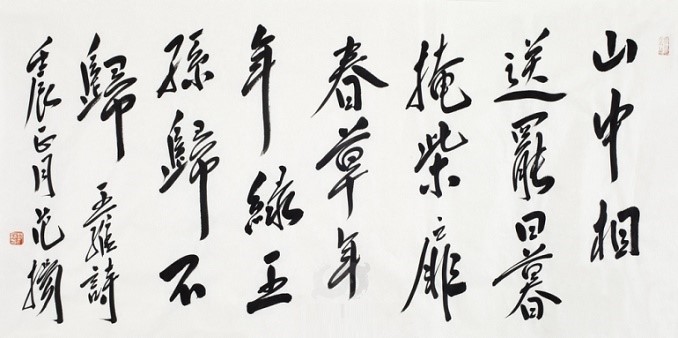 山中相
送罷日暮
掩柴扉
春草年
年綠王
孫歸不
歸 王維詩
壬辰正月范揚